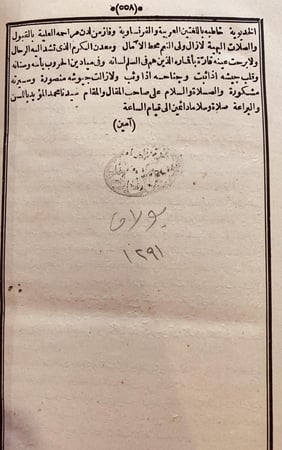 *(٥٥٨)*
الخديوية خاطبه باللغتين العربية والفرنساوية وفاز من لدن مراحمه العلية بالقبول
والصلات البهية لازال ولى النعم محط الآمال ومعدن الكرم الذى تشد اليه الرحال
ولا برحت عينه قارّة بأنجاله الذين هم فى السلم انسانه وفى ميادين الحروب بأسه وسنانه
وقلب جيشه اذا ثبت وجناحه اذا وثب ولازالت جيوشه منصورة وسيرته
مشكورة والصلاة والسلام على صاحب المقال والمقام سيدنا محمد المؤيد باللسن
والبراعة صلاة وسلاما دائمين الى قيام الساعة
(آمين)
بولاق
١٢٩١